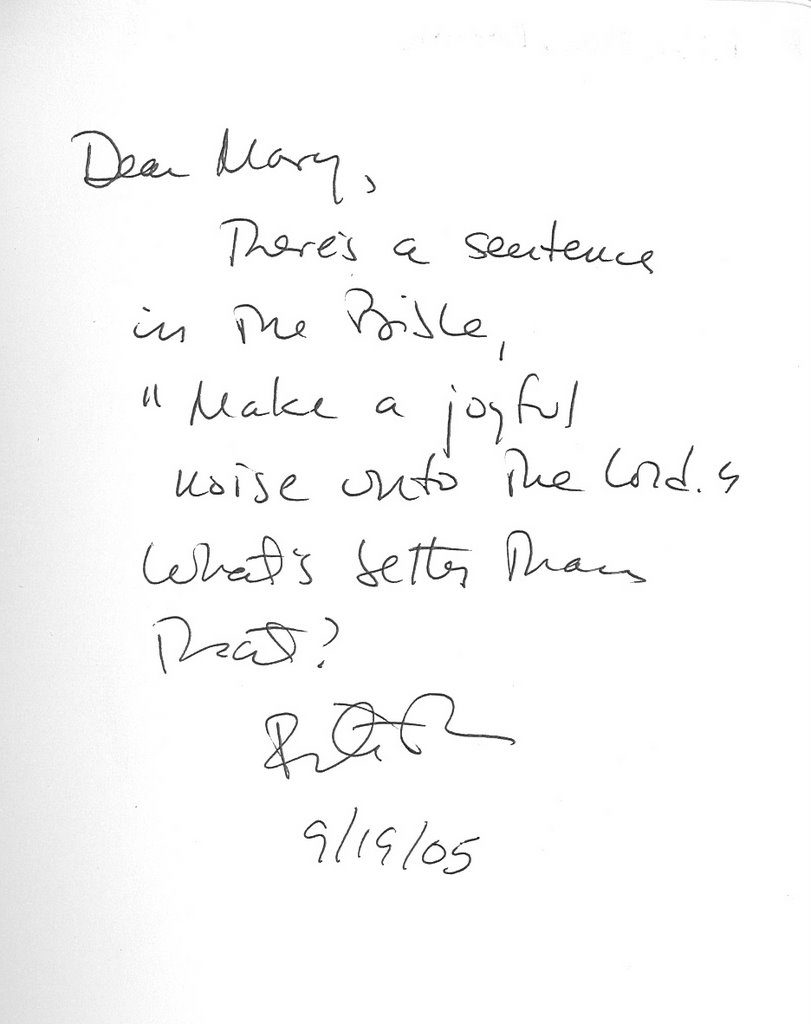 Dear Mary,
There's a sentence
in the Bible,
"Make a joyful
noise unto the Lord."
What's better than
that?
9/19/05